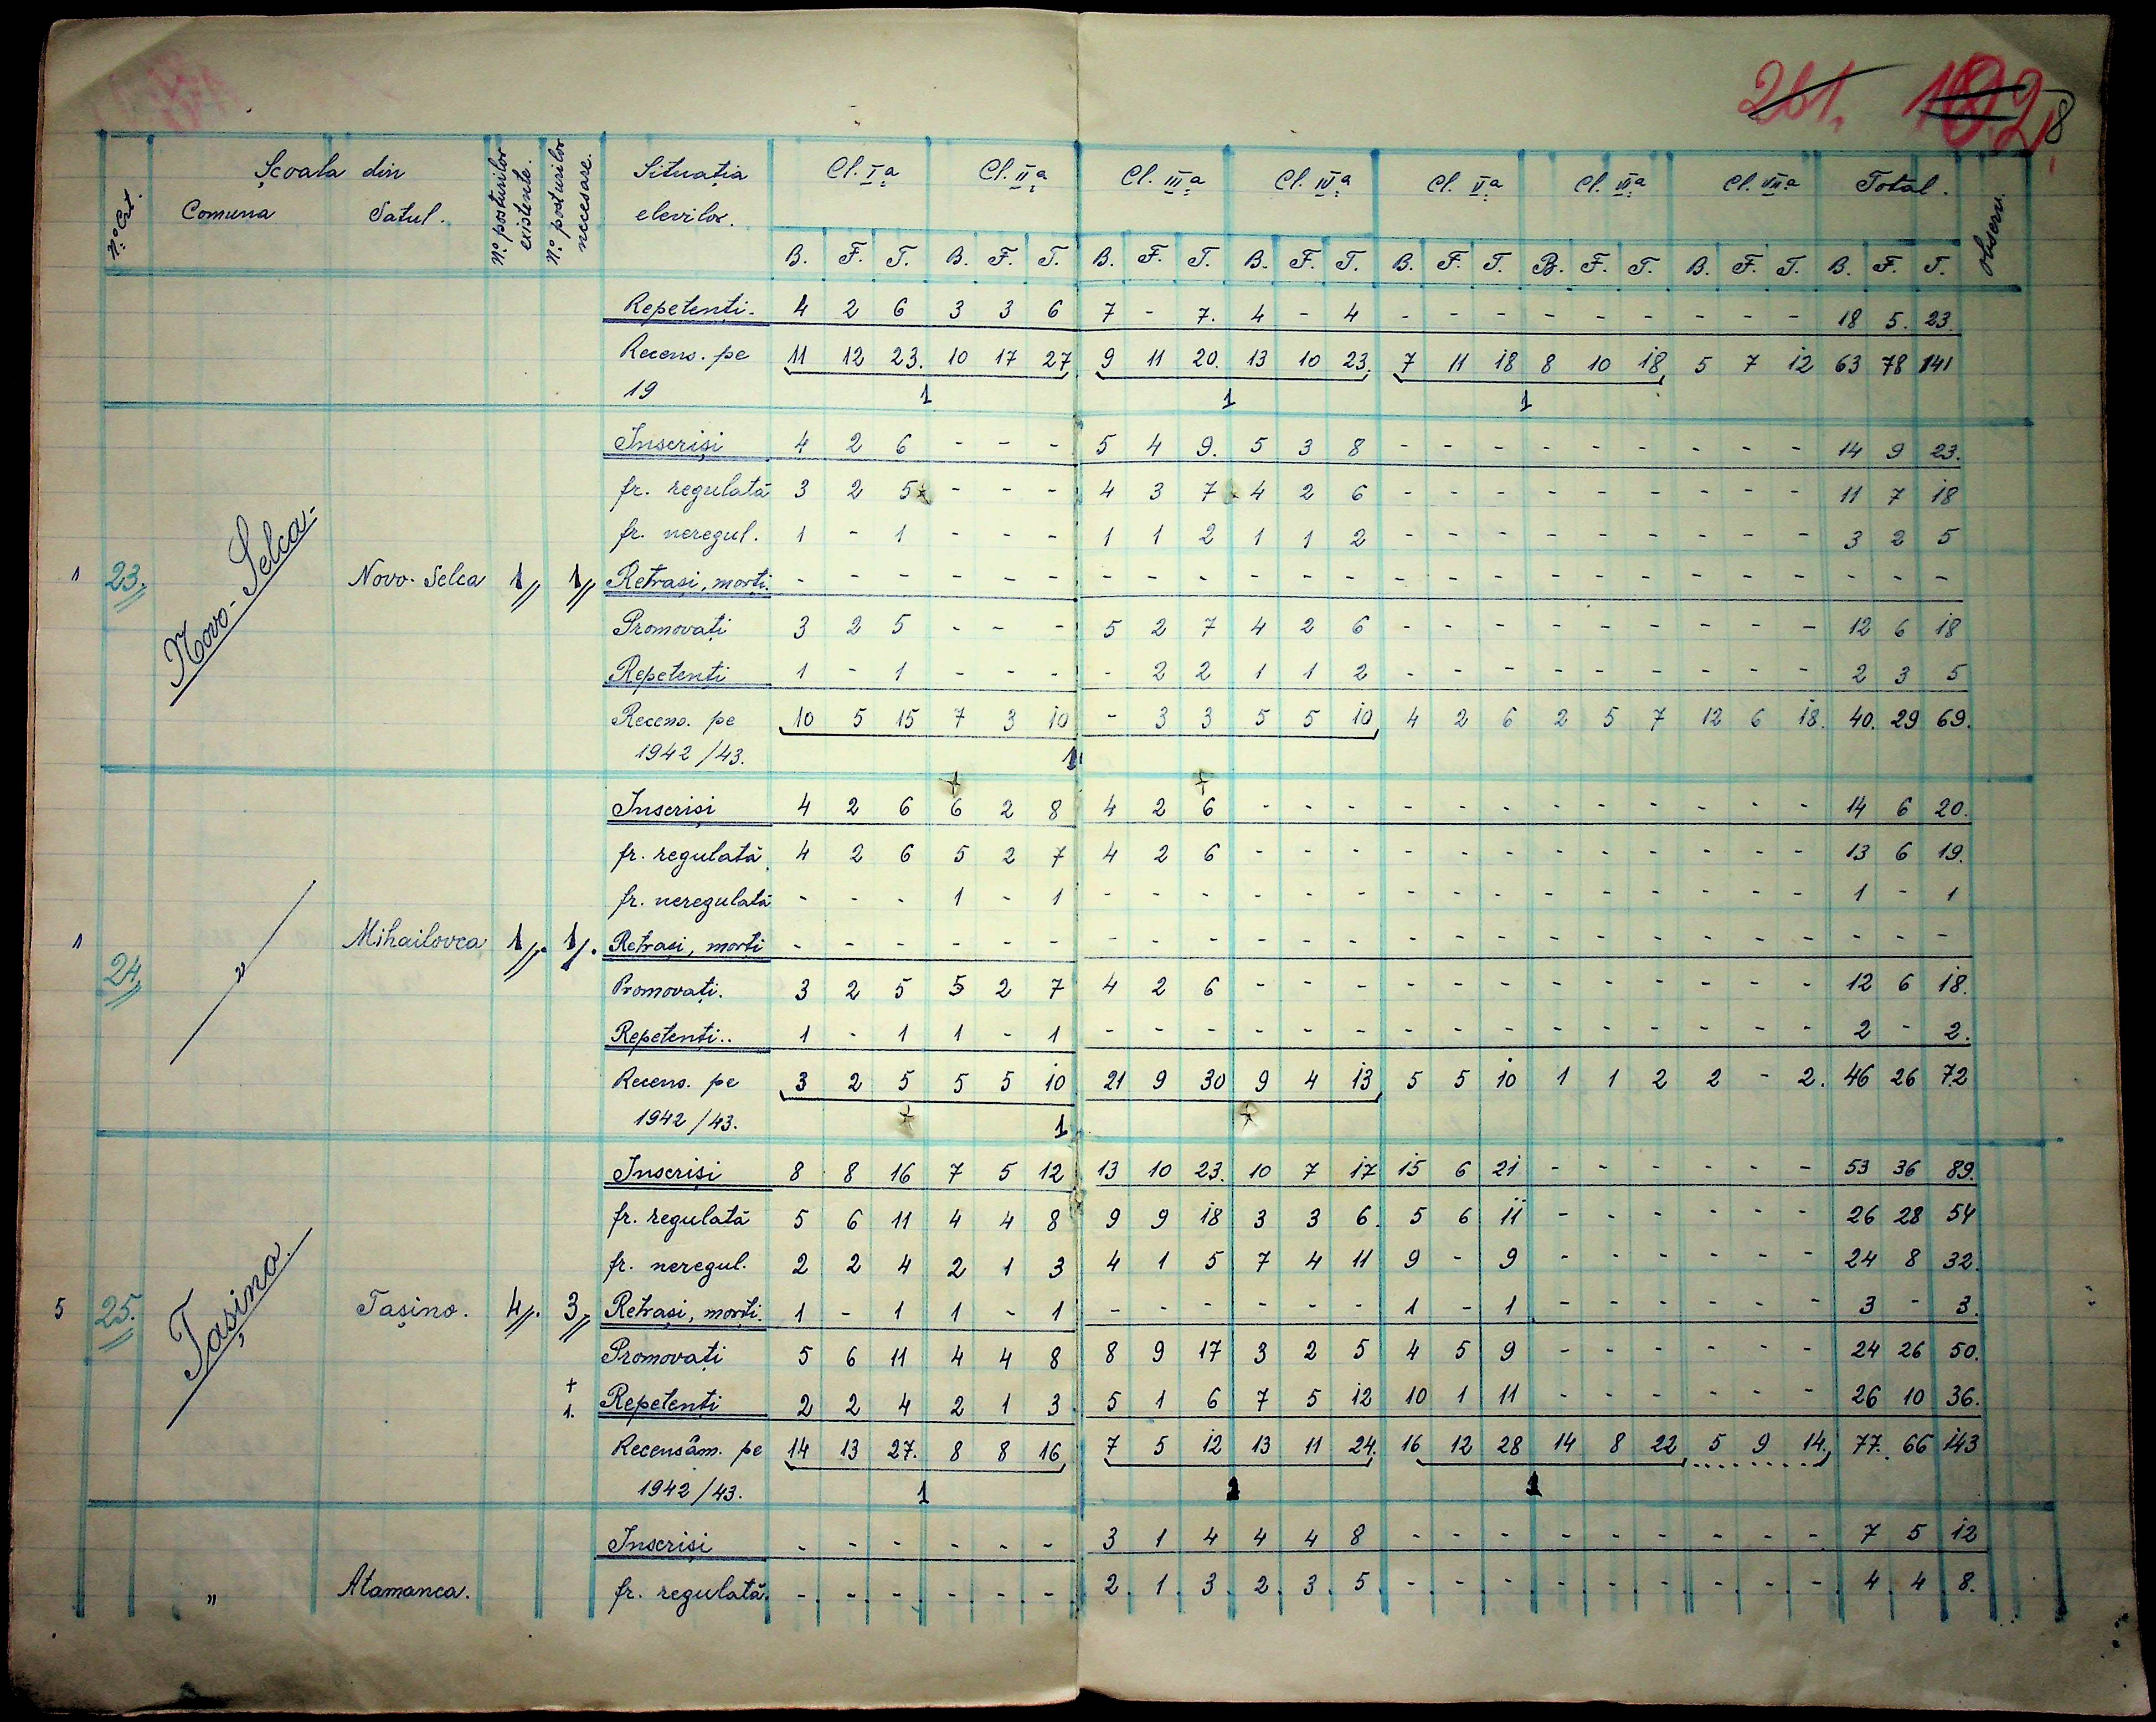 261. 102. 8
Nº Crt. Școala din Nº posturilor existente. Nº posturilor necesare. Situația elevilor. Cl. Iª Cl. IIª Cl. IIIª Cl. IVª Cl. Vª Cl. VIª Cl. VIIª Total. Observ.
Comuna Satul.
B. F. T. B. F. T. B. F. T. B. F. T. B. F. T. B. F. T. B. F. T. B. F. T.
Repetenți. 4 2 6 3 3 6 7 - 7. 4 - 4 - - - - - - - - - 18 5. 23.
Recens. pe 11 12 23. 10 17 27 9 11 20. 13 10 23. 7 11 18 8 10 18 5 7 12 63 78 141
19 1 1 1
Inscriși 4 2 6 - - - 5 4 9. 5 3 8 - - - - - - - - - 14 9 23.
fr. regulată 3 2 5 - - - 4 3 7 4 2 6 - - - - - - - - - 11 7 18
fr. neregul. 1 - 1 - - - 1 1 2 1 1 2 - - - - - - - - - 3 2 5
1 23. Novo-Selca Novo-Selca 1 1 Retrași, morți. - - - - - - - - - - - - - - - - - - - - - - - -
Promovați 3 2 5 - - - 5 2 7 4 2 6 - - - - - - - - - 12 6 18
Repetenți 1 - 1 - - - - 2 2 1 1 2 - - - - - - - - - 2 3 5
Recens. pe 10 5 15 7 3 10 - 3 3 5 5 10 4 2 6 2 5 7 12 6 18. 40. 29 69.
1942/43. 1
Inscriși 4 2 6 6 2 8 4 2 6 - - - - - - - - - - - - 14 6 20.
fr. regulată 4 2 6 5 2 7 4 2 6 - - - - - - - - - - - - 13 6 19.
fr. neregulată - - - 1 - 1 - - - - - - - - - - - - - - - 1 - 1
1 24 " Mihailovca 1. 1. Retrași, morți - - - - - - - - - - - - - - - - - - - - - - - -
Promovați. 3 2 5 5 2 7 4 2 6 - - - - - - - - - - - - 12 6 18.
Repetenți.. 1 - 1 1 - 1 - - - - - - - - - - - - - - - 2 - 2.
Recens. pe 3 2 5 5 5 10 21 9 30 9 4 13 5 5 10 1 1 2 2 - 2. 46 26 72
1942/43. 1
Inscriși 8 8 16 7 5 12 13 10 23. 10 7 17 15 6 21 - - - - - - 53 36 89.
fr. regulată 5 6 11 4 4 8 9 9 18 3 3 6. 5 6 11 - - - - - - 26 28 54
fr. neregul. 2 2 4 2 1 3 4 1 5 7 4 11 9 - 9 - - - - - - 24 8 32.
5 25. Tașino. Tașino. 4. 3 Retrași, morți. 1 - 1 1 - 1 - - - - - - 1 - 1 - - - - - - 3 - 3.
Promovați 5 6 11 4 4 8 8 9 17 3 2 5 4 5 9 - - - - - - 24 26 50.
+ 1. Repetenți 2 2 4 2 1 3 5 1 6 7 5 12 10 1 11 - - - - - - 26 10 36.
Recensăm. pe 14 13 27. 8 8 16 7 5 12 13 11 24. 16 12 28 14 8 22 5 9 14. 77. 66 143
1942/43. 1 1 1
Inscriși - - - - - - 3 1 4 4 4 8 - - - - - - - - - 7 5 12
" Atamanca. fr. regulată. - - - - - - 2 1 3 2 3 5 - - - - - - - - - 4 4 8.